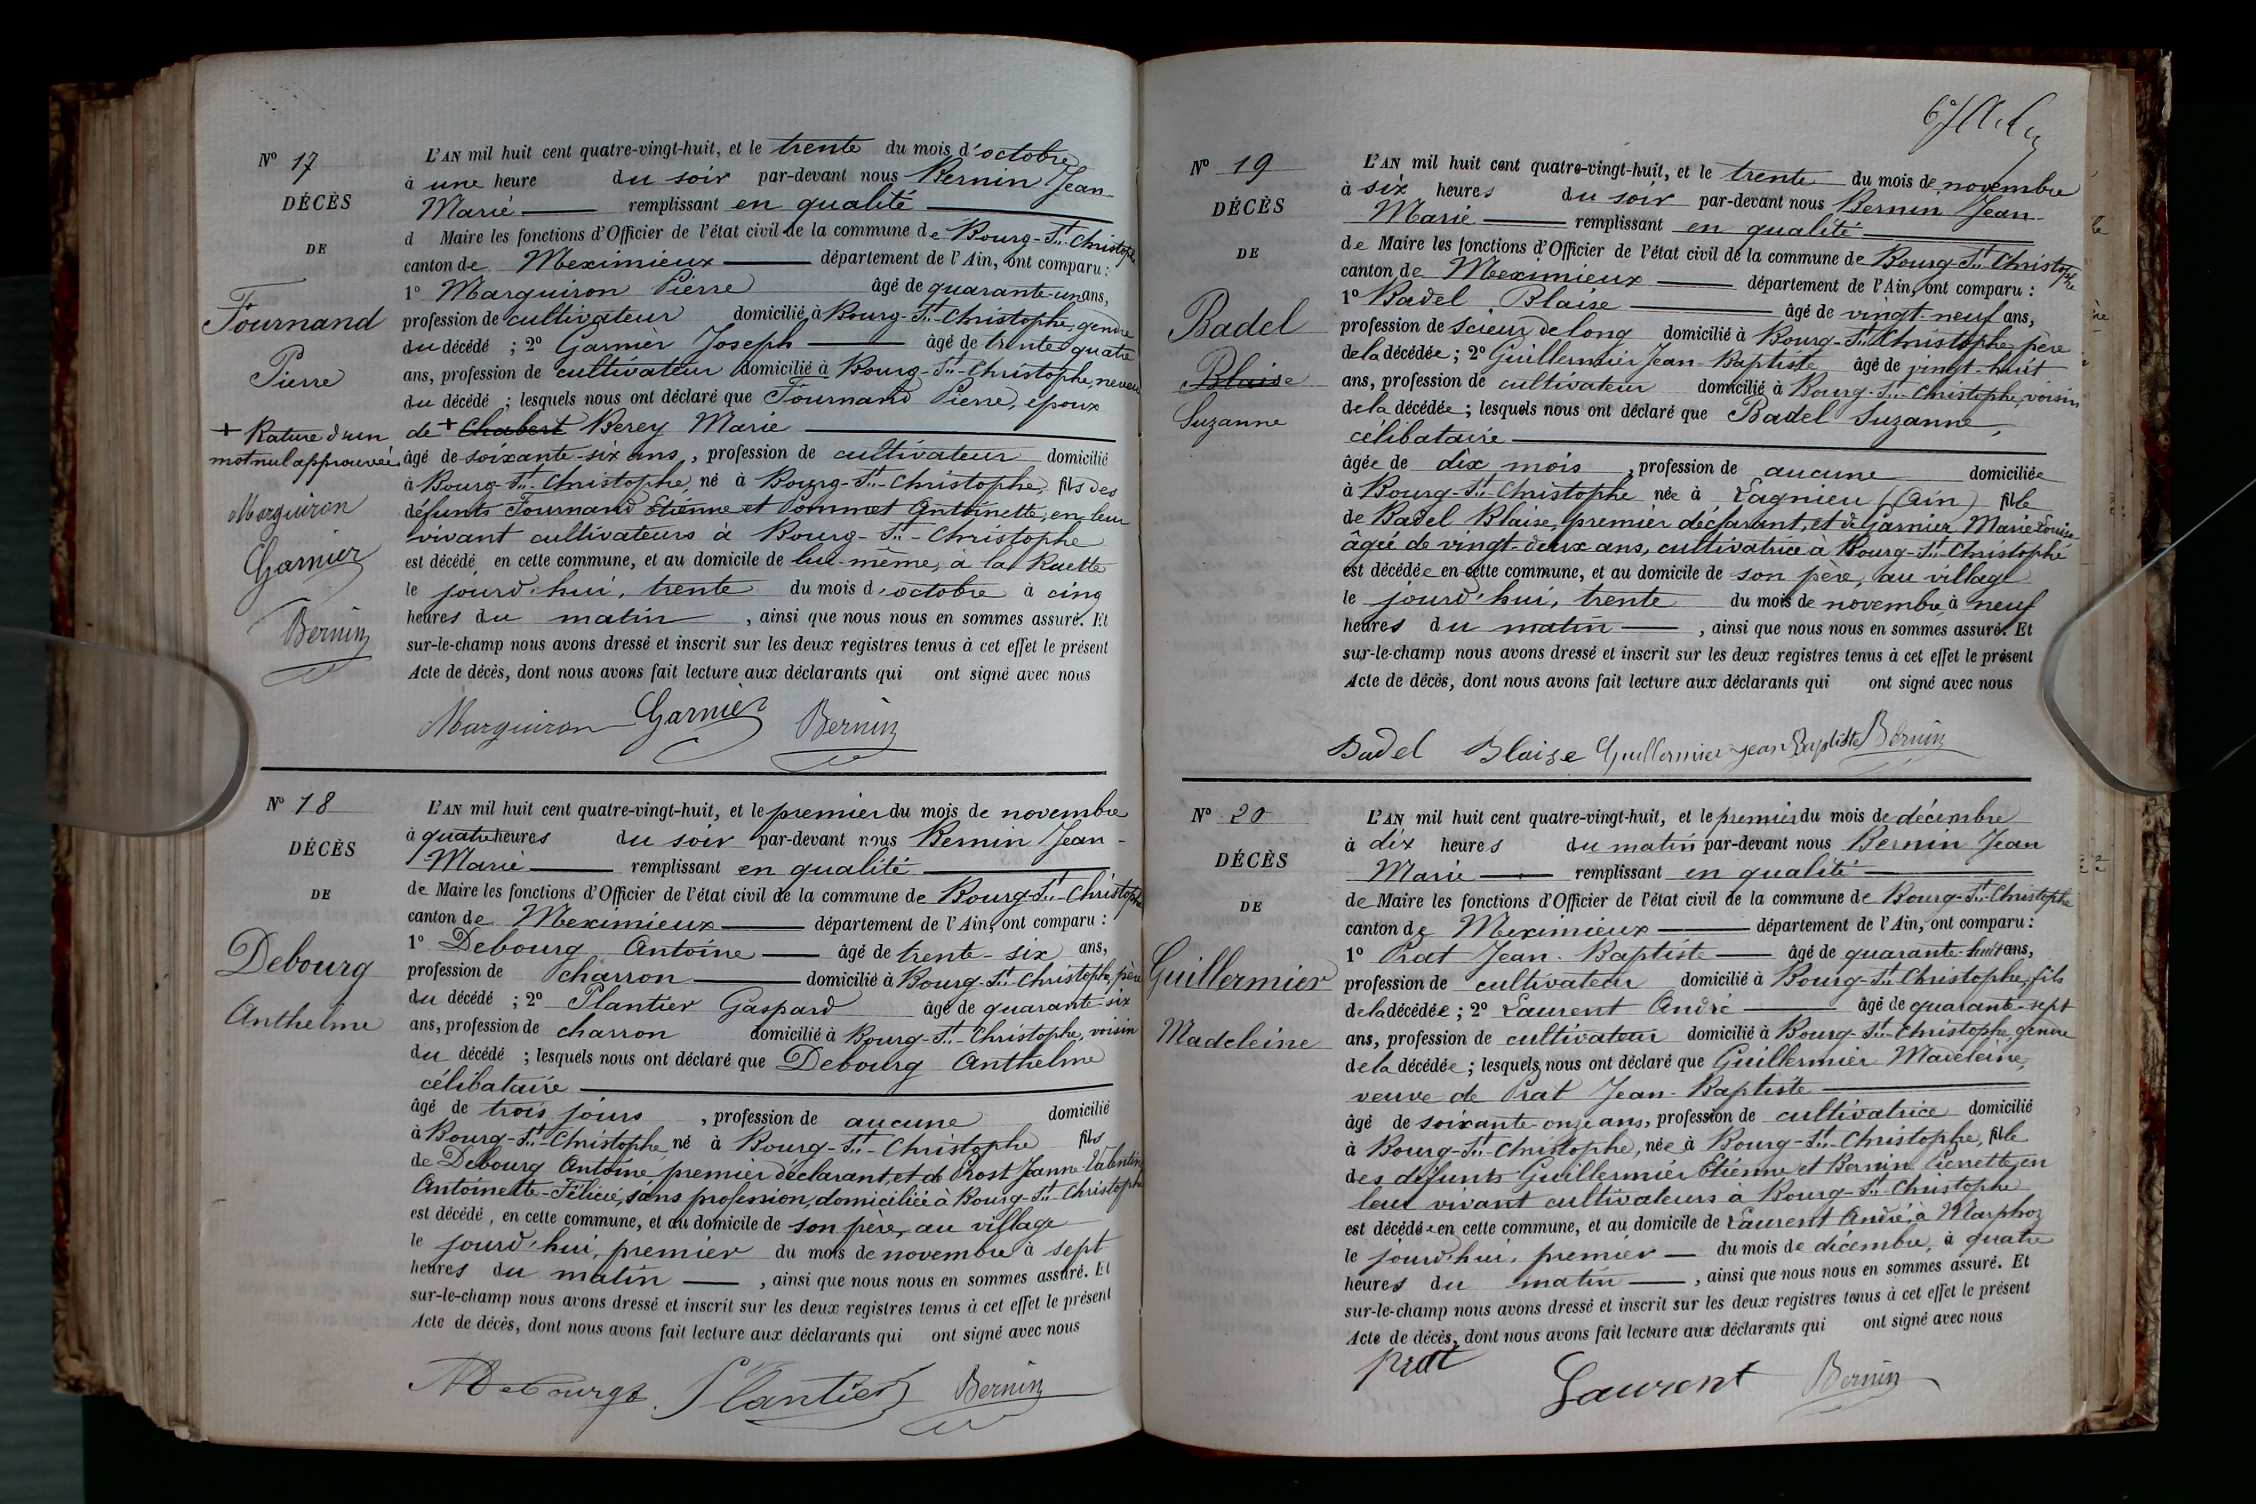 Nº 17
DÉCÈS
DE
Fournand
Pierre
+ Rature d'un
mot nul approuvée
Marguiron
Garnier
Bernin
L'AN mil huit cent quatre-vingt-huit, et le trente du mois d'octobre
à une heure du soir par-devant nous Bernin Jean-
Marie remplissant en qualité
d Maire les fonctions d'Officier de l'état civil de la commune de Bourg-St-Christophe
canton de Meximieux département de l'Ain, ont comparu :
1º Marguiron Pierre âgé de quarante-un ans,
profession de cultivateur domicilié à Bourg-St-Christophe, gendre
du décédé ; 2º Garnier Joseph âgé de trente quatre
ans, profession de cultivateur domicilié à Bourg-St-Christophe, neveu
du décédé ; lesquels nous ont déclaré que Fournand Pierre, époux
de + Chabert Berey Marie
âgé de soixante-six ans, profession de cultivateur domicilié
à Bourg-St-Christophe, né à Bourg-St-Christophe, fils des
défunts Fournand Etienne et Pommet Antoinette, en leur
vivant cultivateurs à Bourg-St-Christophe
est décédé en cette commune, et au domicile de lui-même, à la Ruette
le jourd'hui, trente du mois d'octobre à cinq
heures du matin, ainsi que nous nous en sommes assuré. Et
sur-le-champ nous avons dressé et inscrit sur les deux registres tenus à cet effet le présent
Acte de décès, dont nous avons fait lecture aux déclarants qui ont signé avec nous
Marguiron Garnier Bernin
Nº 18
DÉCÈS
DE
Debourg
Anthelme
L'AN mil huit cent quatre-vingt-huit, et le premier du mois de novembre
à quatre heures du soir par-devant nous Bernin Jean-
Marie remplissant en qualité
de Maire les fonctions d'Officier de l'état civil de la commune de Bourg-St-Christophe
canton de Meximieux département de l'Ain, ont comparu :
1º Debourg Antoine âgé de trente-six ans,
profession de charron domicilié à Bourg-St-Christophe, père
du décédé ; 2º Plantier Gaspard âgé de quarante-six
ans, profession de charron domicilié à Bourg-St-Christophe, voisin
du décédé ; lesquels nous ont déclaré que Debourg Anthelme
célibataire
âgé de trois jours, profession de aucune domicilié
à Bourg-St-Christophe, né à Bourg-St-Christophe fils
de Debourg Antoine premier déclarant, et de Prost Janne Valentine
Antoinette-Félicie, sans profession, domiciliée à Bourg-St-Christophe
est décédé, en cette commune, et au domicile de son père, au village
le jourd'hui, premier du mois de novembre à sept
heures du matin, ainsi que nous nous en sommes assuré. Et
sur-le-champ nous avons dressé et inscrit sur les deux registres tenus à cet effet le présent
Acte de décès, dont nous avons fait lecture aux déclarants qui ont signé avec nous
ADebourg Plantier Bernin
Nº 19
DÉCÈS
DE
Badel
Blaise
Suzanne
L'AN mil huit cent quatre-vingt-huit, et le trente du mois de novembre
à six heures du soir par-devant nous Bernin Jean-
Marie remplissant en qualité
de Maire les fonctions d'Officier de l'état civil de la commune de Bourg-St-Christophe
canton de Meximieux département de l'Ain, ont comparu :
1º Badel Blaise âgé de vingt-neuf ans,
profession de scieur de long domicilié à Bourg-St-Christophe, père
de la décédée ; 2º Guillermier Jean-Baptiste âgé de vingt-huit
ans, profession de cultivateur domicilié à Bourg-St-Christophe, voisin
de la décédée ; lesquels nous ont déclaré que Badel Suzanne,
célibataire
âgée de dix mois, profession de aucune domiciliée
à Bourg-St-Christophe née à Lagnieu (Ain) fille
de Badel Blaise, premier déclarant, et de Garnier Marie Louise
âgée de vingt-deux ans, cultivatrice à Bourg-St-Christophe
est décédée en cette commune, et au domicile de son père, au village
le jourd'hui, trente du mois de novembre, à neuf
heures du matin, ainsi que nous nous en sommes assuré. Et
sur-le-champ nous avons dressé et inscrit sur les deux registres tenus à cet effet le présent
Acte de décès, dont nous avons fait lecture aux déclarants qui ont signé avec nous
Badel Blaise Guillermier Jean Baptiste Bernin
Nº 20
DÉCÈS
DE
Guillermier
Madeleine
L'AN mil huit cent quatre-vingt-huit, et le premier du mois de décembre
à dix heures du matin par-devant nous Bernin Jean
Marie remplissant en qualité
de Maire les fonctions d'Officier de l'état civil de la commune de Bourg-St-Christophe
canton de Meximieux département de l'Ain, ont comparu :
1º Prat Jean-Baptiste âgé de quarante-huit ans,
profession de cultivateur domicilié à Bourg-St-Christophe, fils
de la décédée ; 2º Laurent André âgé de quarante-sept
ans, profession de cultivateur domicilié à Bourg-St-Christophe, gendre
de la décédée ; lesquels nous ont déclaré que Guillermier Madeleine,
veuve de Prat Jean-Baptiste
âgé de soixante-onze ans, profession de cultivatrice domicilié
à Bourg-St-Christophe, née à Bourg-St-Christophe, fille
des défunts Guillermier Etienne et Bernin Pierrette, en
leur vivant cultivateurs à Bourg-St-Christophe
est décédée en cette commune, et au domicile de Laurent André, à Marphoz
le jourd'hui, premier du mois de décembre, à quatre
heures du matin, ainsi que nous nous en sommes assuré. Et
sur-le-champ nous avons dressé et inscrit sur les deux registres tenus à cet effet le présent
Acte de décès, dont nous avons fait lecture aux déclarants qui ont signé avec nous
Prat Laurent Bernin